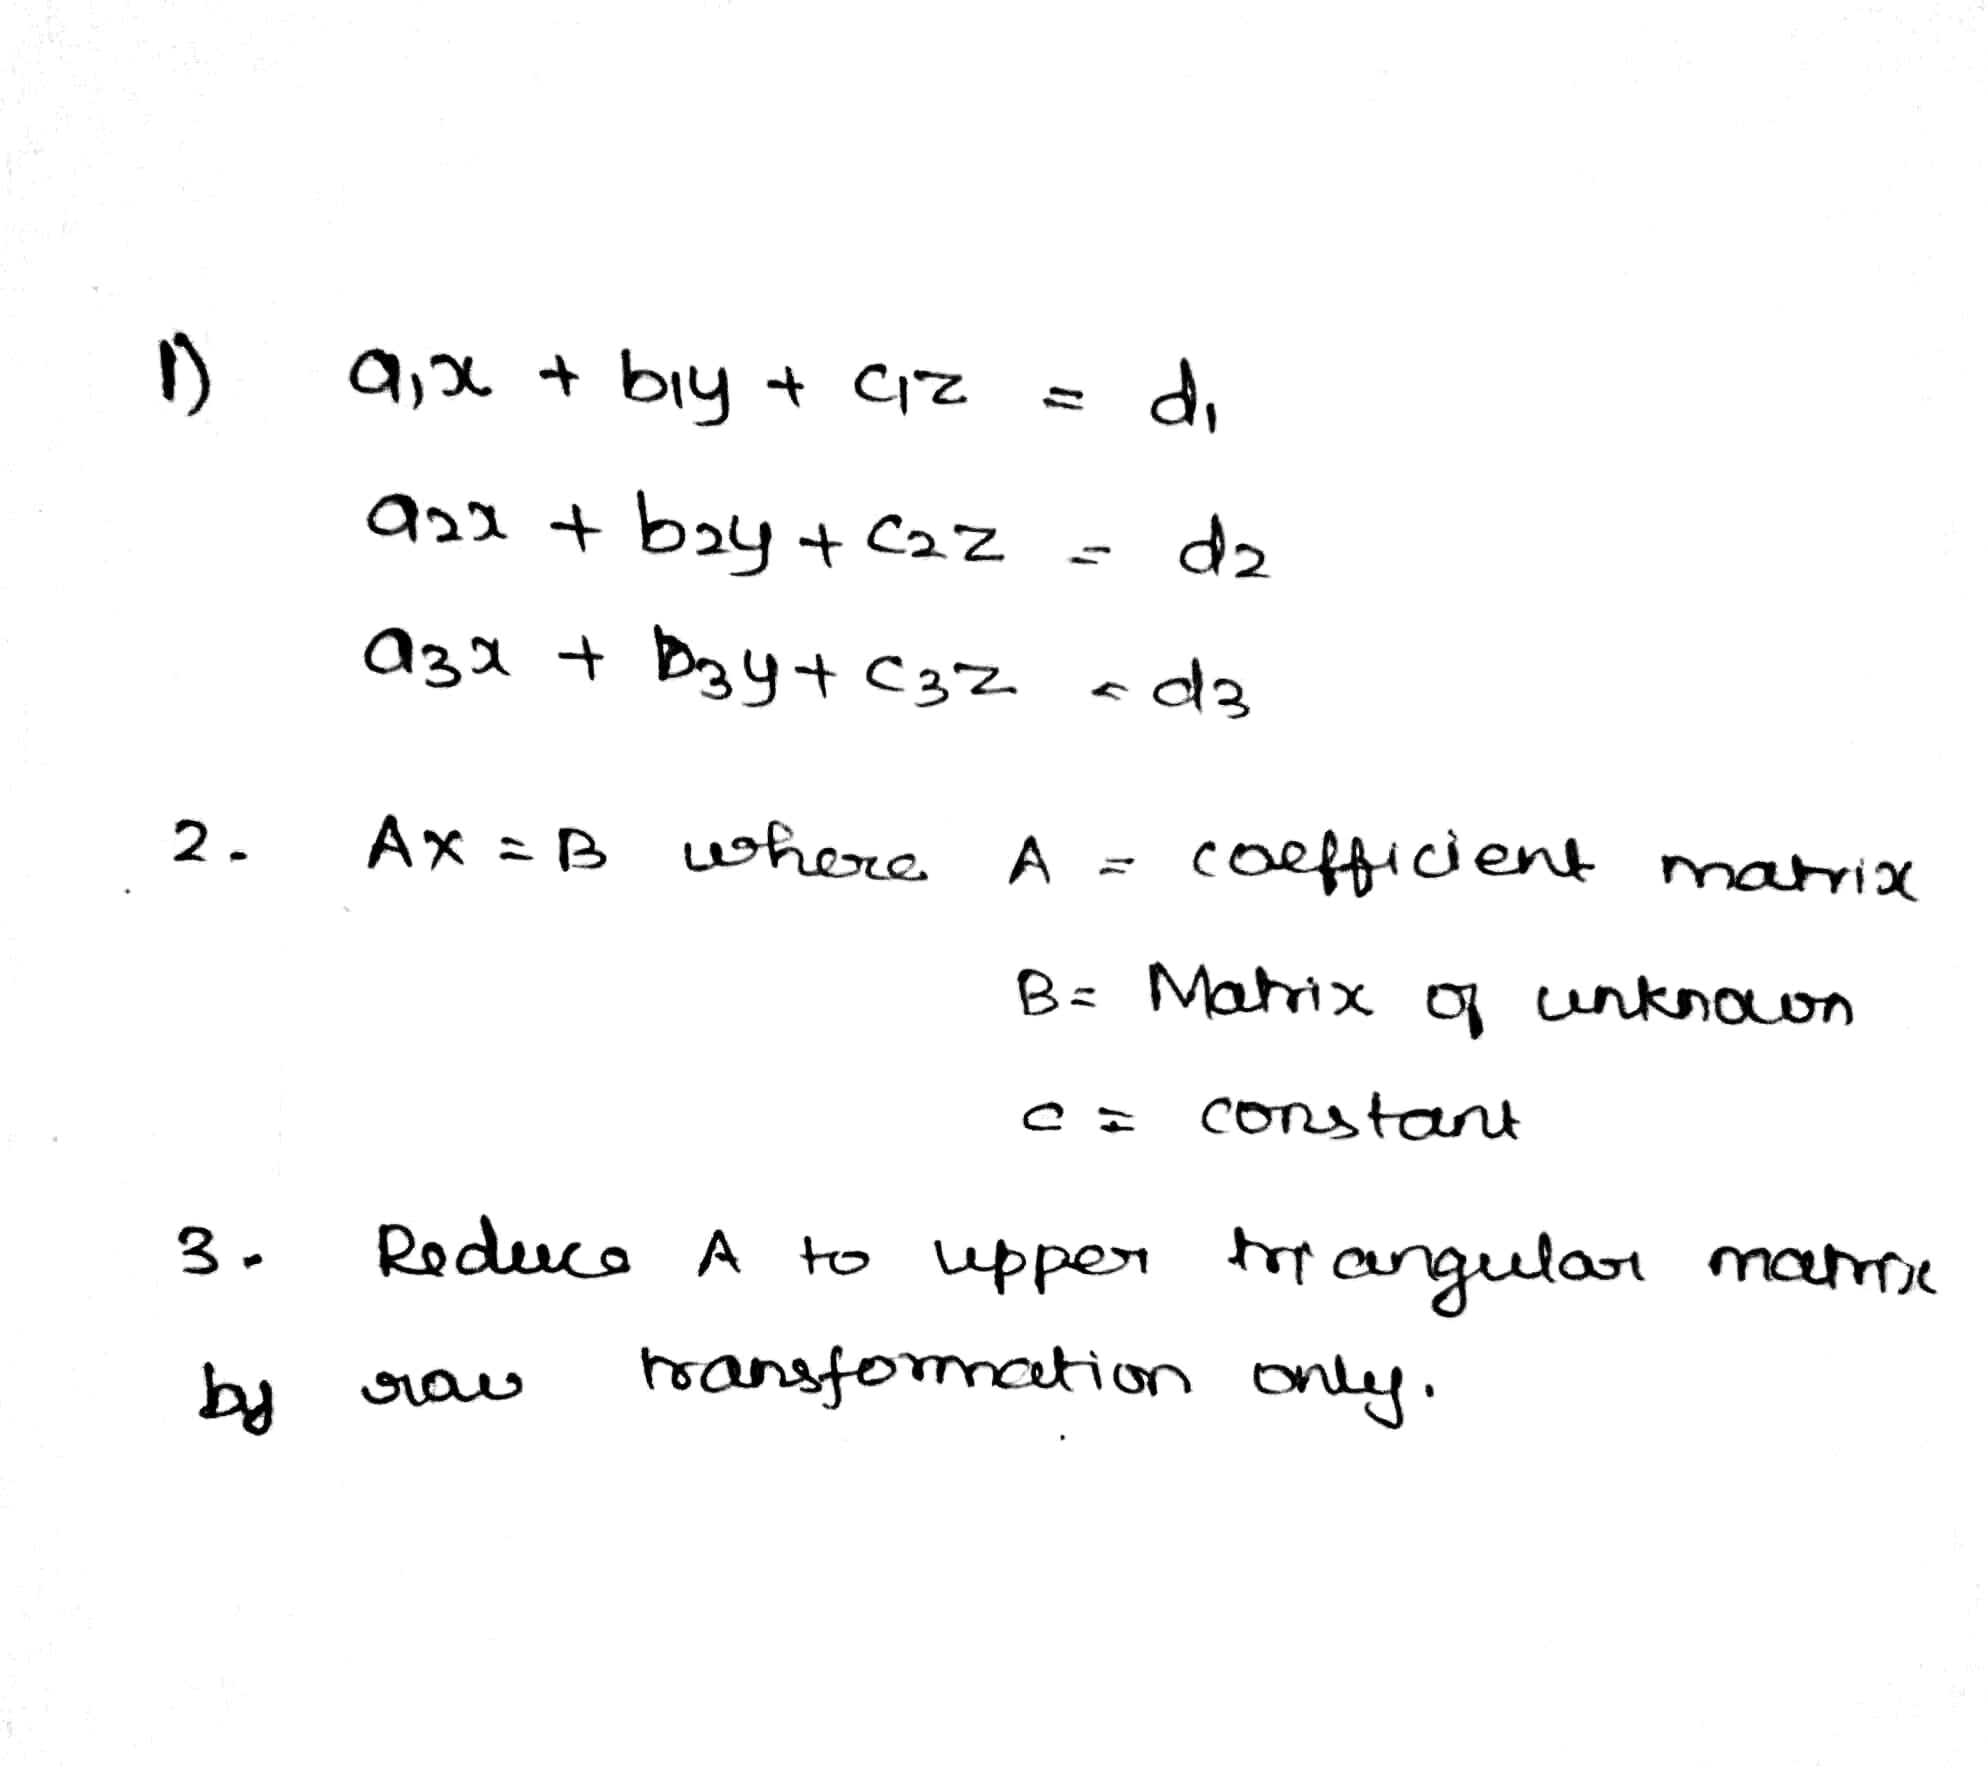 1) a₁x + b₁y + c₁z = d₁
a₂x + b₂y + c₂z = d₂
a₃x + b₃y + c₃z = d₃
2. AX = B where A = coefficient matrix
B = Matrix of unknown
C = constant
3. Reduce A to upper triangular matrix
by row transformation only.